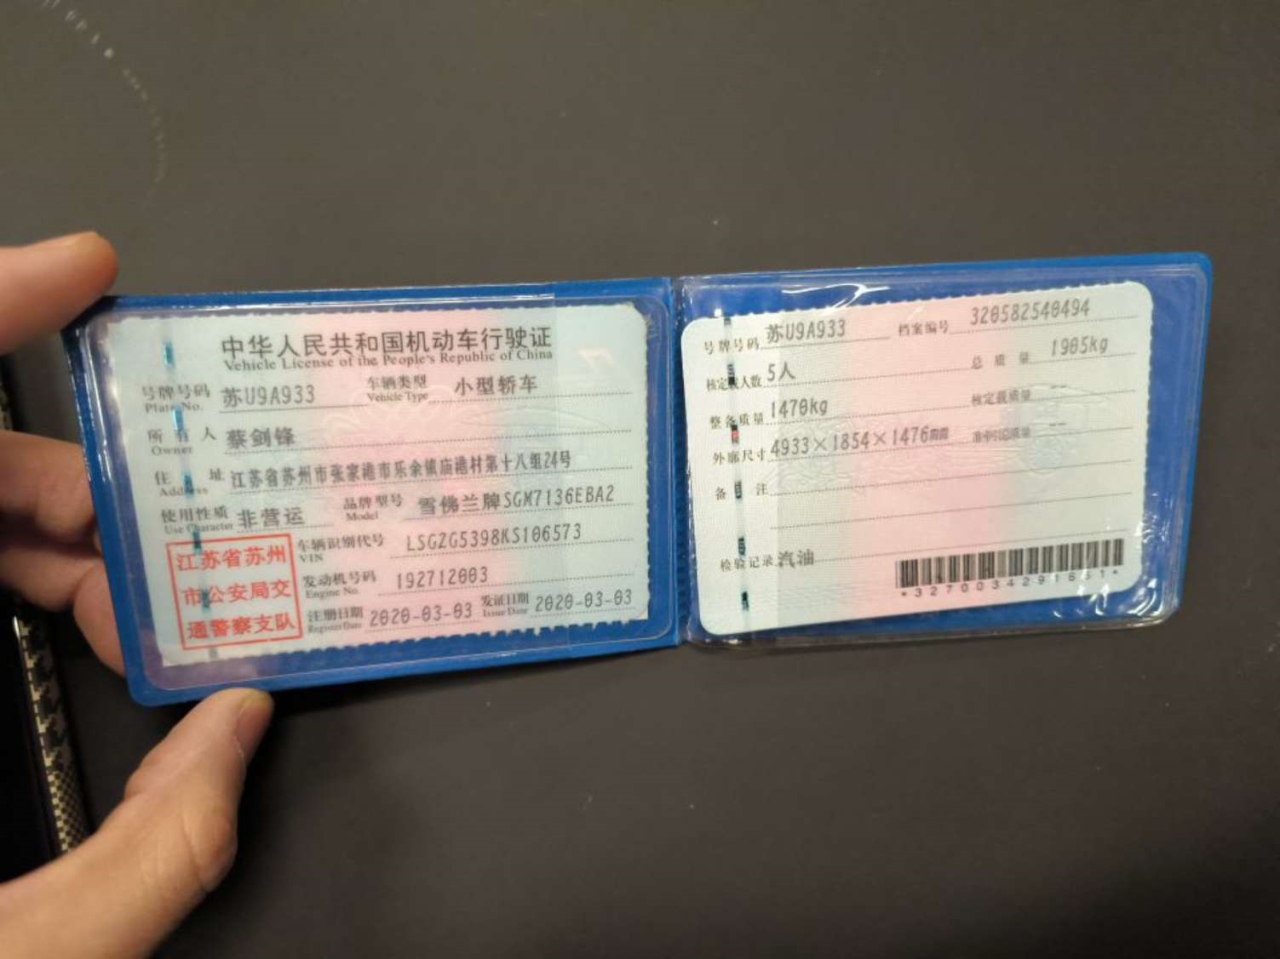 中华人民共和国机动车行驶证
Vehicle License of the People's Republic of China
号牌号码 苏U9A933 车辆类型 小型轿车
Plate No. Vehicle Type
所有人 蔡剑锋
Owner
住址 江苏省苏州市张家港市乐余镇庙港村第十八组24号
Address
使用性质 非营运 品牌型号 雪佛兰牌SGM7136EBA2
Use Character Model
江苏省苏州
市公安局交
通警察支队
车辆识别代号 LSGZG5398KS106573
VIN
发动机号码 192712003
Engine No.
注册日期 2020-03-03 发证日期 2020-03-03
Register Date Issue Date
号牌号码 苏U9A933 档案编号 320582540494
核定载人数 5人 总质量 1905kg
整备质量 1470kg 核定载质量 --
外廓尺寸 4933×1854×1476mm 准牵引总质量 --
备注
检验记录 汽油